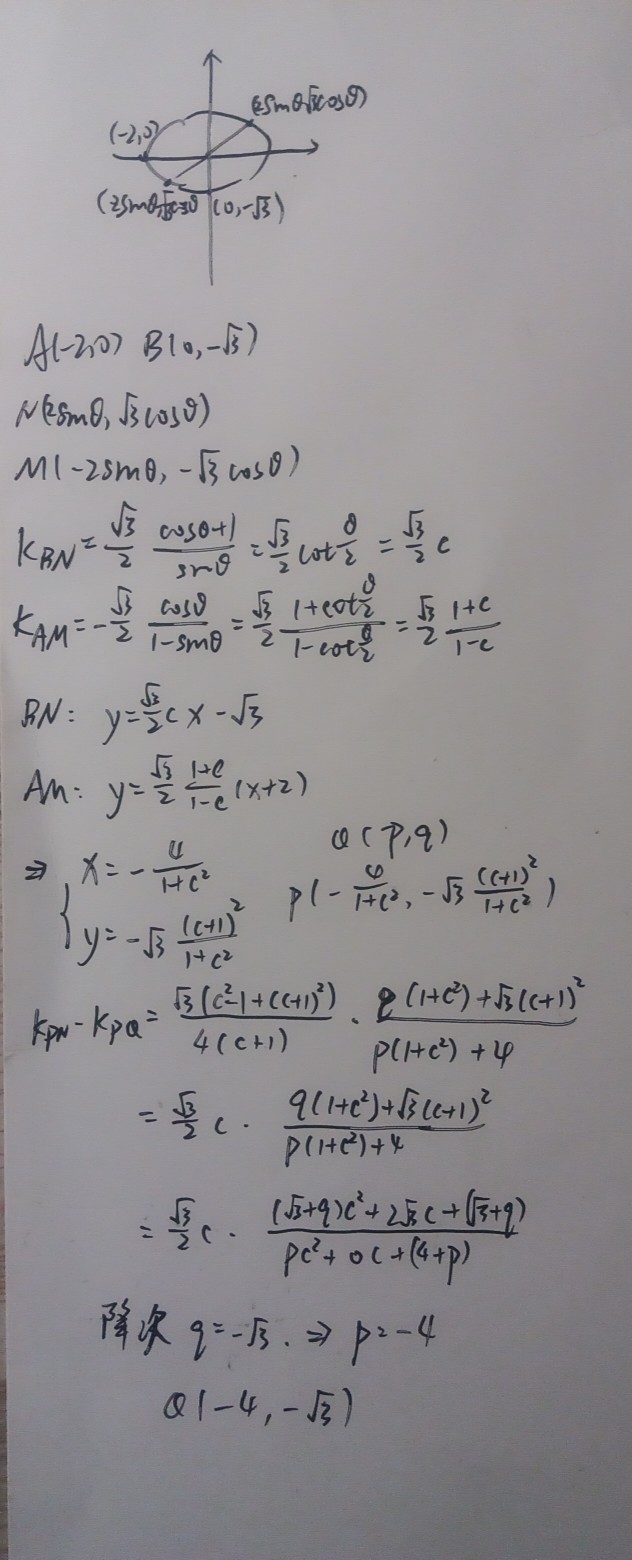 (2sinθ,√3cosθ)
(-2,0)
(2sinθ,√3cosθ) (0,-√3)
A(-2,0) B(0,-√3)
N(2sinθ, √3cosθ)
M(-2sinθ, -√3cosθ)
K_BN = √3/2 (cosθ+1)/sinθ = √3/2 cot θ/2 = √3/2 c
K_AM = -√3/2 cosθ/(1-sinθ) = √3/2 (1+cot θ/2)/(1-cot θ/2) = √3/2 (1+c)/(1-c)
BN: y=√3/2 c x-√3
AM: y=√3/2 (1+c)/(1-c) (x+2)
Q(p,q)
⇒ { x=-4/(1+c²) P(-4/(1+c²), -√3 (c+1)²/(1+c²))
y=-√3 (c+1)²/(1+c²)
K_PN-K_PQ = √3(c²-1+(c+1)²)/4(c+1) · (q(1+c²)+√3(c+1)²)/(p(1+c²)+4)
= √3/2 c · (q(1+c²)+√3(c+1)²)/(p(1+c²)+4)
= √3/2 c · ((√3+q)c²+2√3c+(√3+q))/(pc²+0c+(4+p))
降次 q=-√3. ⇒ p=-4
Q(-4,-√3)